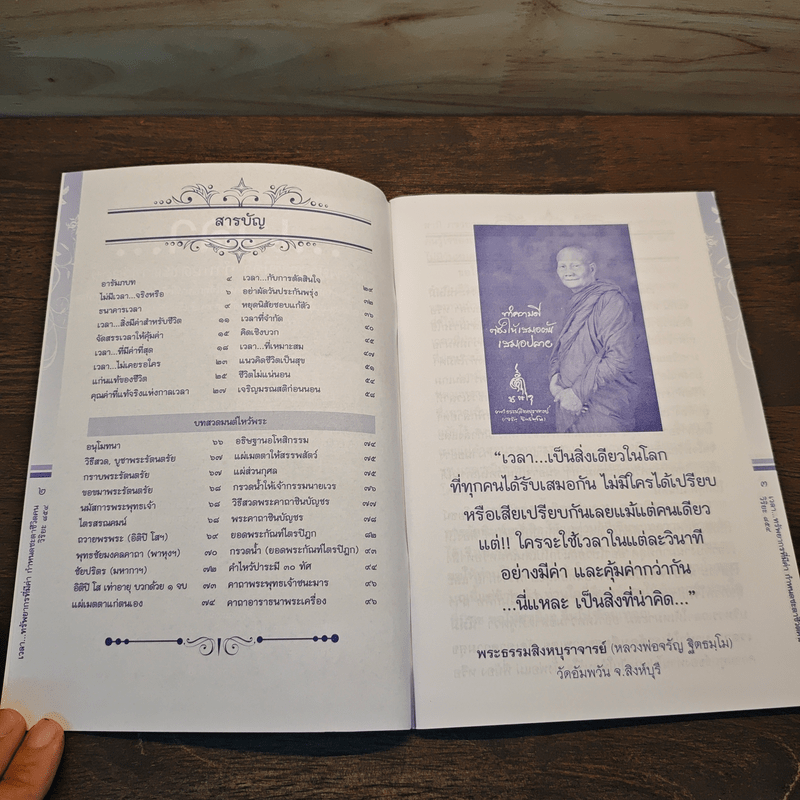 สารบัญ
อารัมภบท ๔
ไม่มีเวลา...จริงหรือ ๖
ธนาคารเวลา ๙
เวลา...สิ่งมีค่าสำหรับชีวิต ๑๑
จัดสรรเวลาให้คุ้มค่า ๑๕
เวลา...ที่มีค่าที่สุด ๑๘
เวลา...ไม่เคยรอใคร ๒๓
แก่นแท้ของชีวิต ๒๕
คุณค่าที่แท้จริงแห่งกาลเวลา ๒๗
เวลา...กับการตัดสินใจ ๒๙
อย่าผัดวันประกันพรุ่ง ๓๒
หยุดนิสัยชอบแก้ตัว ๓๖
เวลาที่จำกัด ๔๐
คิดเชิงบวก ๔๕
เวลา...ที่เหมาะสม ๔๗
แนวคิดชีวิตเป็นสุข ๕๑
ชีวิตไม่แน่นอน ๕๔
เจริญมรณสติก่อนนอน ๕๘
บทสวดมนต์ไหว้พระ
อนุโมทนา ๖๖
วิธีสวด. บูชาพระรัตนตรัย ๖๗
กราบพระรัตนตรัย ๖๗
ขอขมาพระรัตนตรัย ๖๘
นมัสการพระพุทธเจ้า ๖๘
ไตรสรณคมน์ ๖๘
ถวายพรพระ (อิติปิ โสฯ) ๖๙
พุทธชัยมงคลคาถา (พาหุงฯ) ๗๐
ชัยปริตร (มหากาฯ) ๗๒
อิติปิ โส เท่าอายุ บวกด้วย ๑ จบ
แผ่เมตตาแก่ตนเอง ๗๔
อธิษฐานอโหสิกรรม ๗๔
แผ่เมตตาให้สรรพสัตว์ ๗๕
แผ่ส่วนกุศล ๗๕
กรวดน้ำให้เจ้ากรรมนายเวร ๗๖
วิธีสวดพระคาถาชินบัญชร ๗๗
พระคาถาชินบัญชร ๗๘
ยอดพระกัณฑ์ไตรปิฎก ๘๒
กรวดน้ำ (ยอดพระกัณฑ์ไตรปิฎก) ๙๓
คำไหว้บาระมี ๓๐ ทัศ ๙๔
คาถาพระพุทธเจ้าชนะมาร ๙๖
คาถาอาราธนาพระเครื่อง ๙๖
เวลา...ทรัพยากรที่มีค่า กำหนดชะตาชีวิตคน
วิริยะ ๘๕๔
๒
ทำความดี
“เวลา...เป็นสิ่งเดียวในโลก
ที่ทุกคนได้รับเสมอกัน ไม่มีใครได้เปรียบ
หรือเสียเปรียบกันเลยแม้แต่คนเดียว
แต่!! ใครจะใช้เวลาในแต่ละวินาที
อย่างมีค่า และคุ้มค่ากว่ากัน
...นี่แหละ เป็นสิ่งที่น่าคิด...”
พระธรรมสิงหบุราจารย์ (หลวงพ่อจรัญ ฐิตธมฺโม)
วัดอัมพวัน จ.สิงห์บุรี
เวลา...ทรัพยากรที่มีค่า กำหนดชะตาชีวิตคน
วิริยะ ๘๕๔